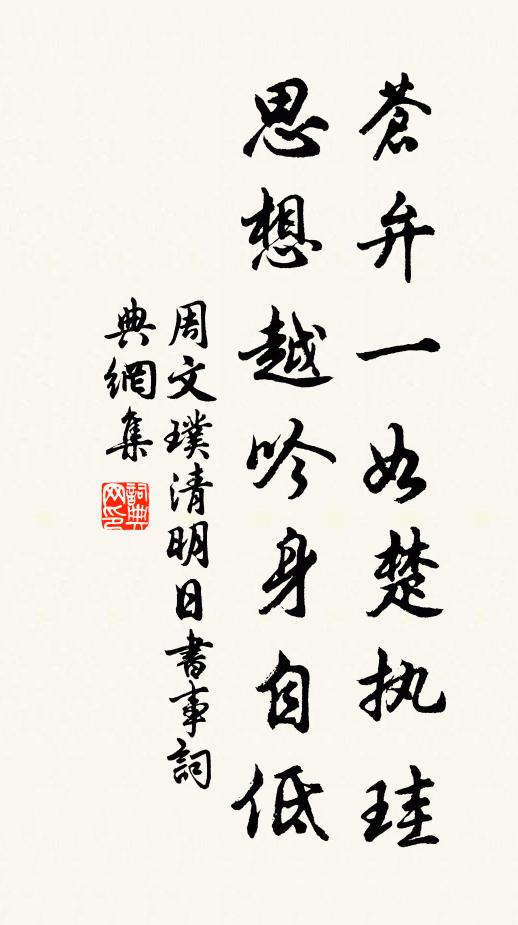 蒼弁一如楚执珪
思想越吟身自低
周文璞清明日書事詞
典網集
詞典网印